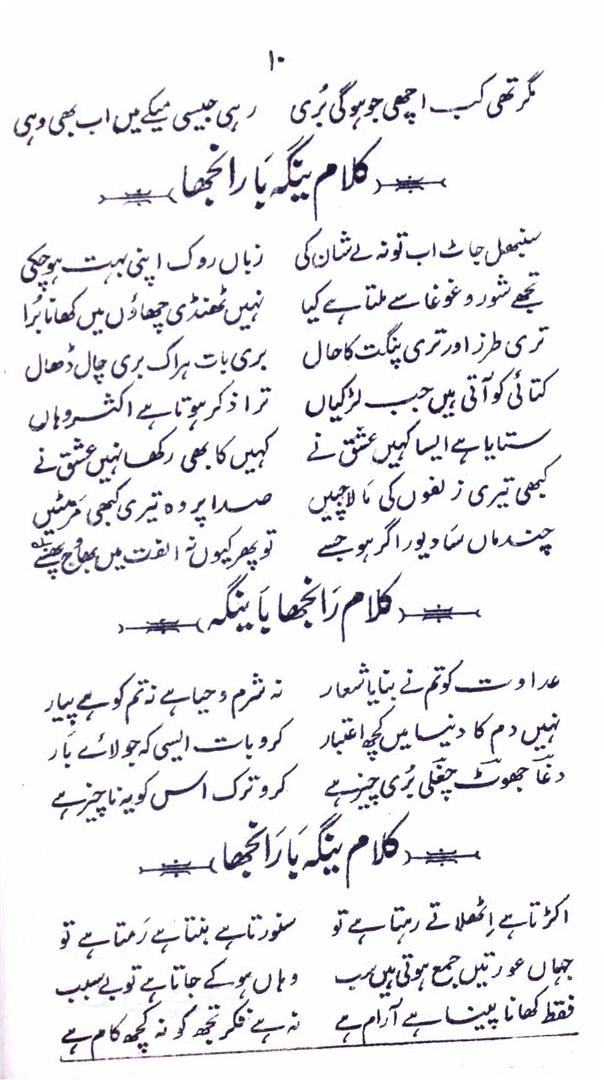 ۱۰
مگر تھی کب اچھی جو ہوگی بُری رہی جیسی میکے میں اب بھی وہی
کلام بینگہ بَا رانجھا
سنبھل جاٹ اب تو نہ لے شان کی زباں روک اپنی بہت ہو چکی
تجھے شور و غوغا سے ملتا ہے کیا نہیں ٹھنڈی چھاؤں میں کھانا بُرا
تری طرز اور تری پنگت کا حال بری بات ہر اک بری چال ڈھال
کتائی کو آتی ہیں جب لڑکیاں ترا ذکر ہوتا ہے اکثر وہاں
ستایا ہے ایسا کہیں عشق نے کہیں کا بھی رکھا نہیں عشق نے
کبھی تیری زلفوں کی مالا جپیں صدا پر وہ تیری کبھی مَر مٹیں
چندرماں سَا دیور اگر ہو جسے تو پھر کیوں نہ الفت میں بھاوج پھنسے
کلام رَانجھا بَا بینگہ
عداوت کو تم نے بنایا شعار نہ شرم و حیا ہے نہ تم کو ہے پیار
نہیں دم کا دنیا میں کچھ اعتبار کرو بات ایسی کہ جو لائے بَار
دغا جھوٹ چغلی بُری چیز ہے کرو ترک اس کو یہ ناچیز ہے
کلام بینگہ بَا رَانجھا
اکڑتا ہے اِٹھلاتے رہتا ہے تو سنورتا ہے ہنتا ہے رَمتا ہے تو
جہاں عورتیں جمع ہوتی ہیں سب وہاں ہو کے جاتا ہے تو بے سبب
فقط کھانا پینا ہے آرام ہے نہ ہے فکر تجھ کو نہ کچھ کام ہے